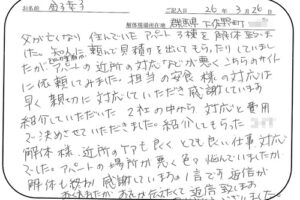 ご記入日 26年 3月 26日
解体現場所在地 群馬県 下佐野町
父が亡くなり 住んでいた アパート 3棟を 解体致しま
した。知人に 頼んで 見積りを 出してもらったりしていまし
たが アパートの 近所の 対応などが 悪く こちらのサイト
に依頼してみました。担当の安食様の対応は
早く 親切に 対応していただき 感謝しています
紹介していただいた 2社の中から 対応と費用
で決めさせていただきました。紹介してもらった
解体様、近所のケアも良く とても良い仕事 対応
でした。アパートの場所が悪く色々悩んでいましたが
解体も終り 感謝しています。1言です 返信が
おくれましたが お礼が伝えたくて 返信致します